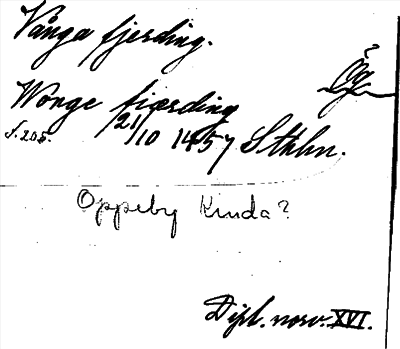 Vånga fjerding.
Ög
Wonge fiærding
s. 205. 21/10 1457 Sthlm.
Oppeby Kinda?
Dipl. norv. XVI.